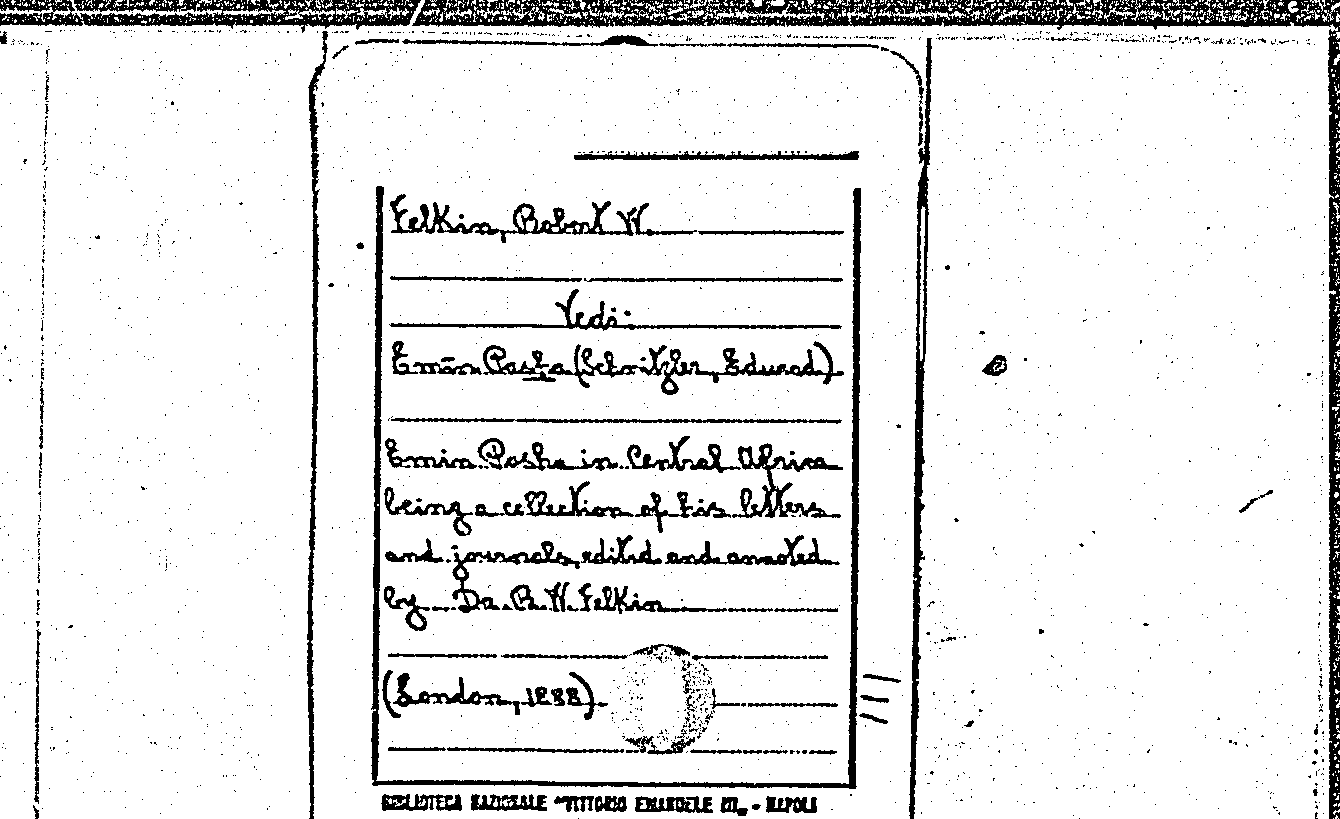 Felkin, Robert W.
Vedi:
Emin Pasha (Schnitzler, Eduard)
Emin Pasha in Central Africa
being a collection of his letters
and journals, edited and annoted
by Dr. R. W. Felkin
(London, 1888)
BIBLIOTECA NAZIONALE "VITTORIO EMANUELE III" - NAPOLI